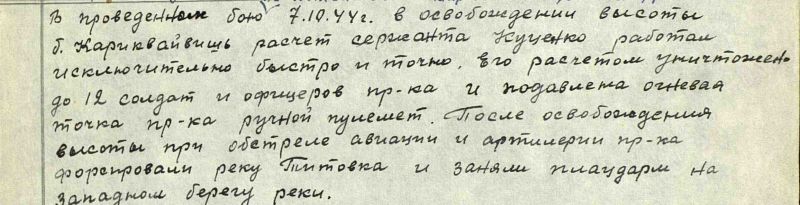 В проведенном бою 7.10.44г. в освобождении высоты
б. Кариквайвишь расчет сержанта Куценко работал
исключительно быстро и точно. Его расчетом уничтожено
до 12 солдат и офицеров пр-ка и подавлена огневая
точка пр-ка ручной пулемет. После освобождения
высоты при обстреле авиации и артилерии пр-ка
форсировали реку Титовка и заняли плацдарм на
западном берегу реки.